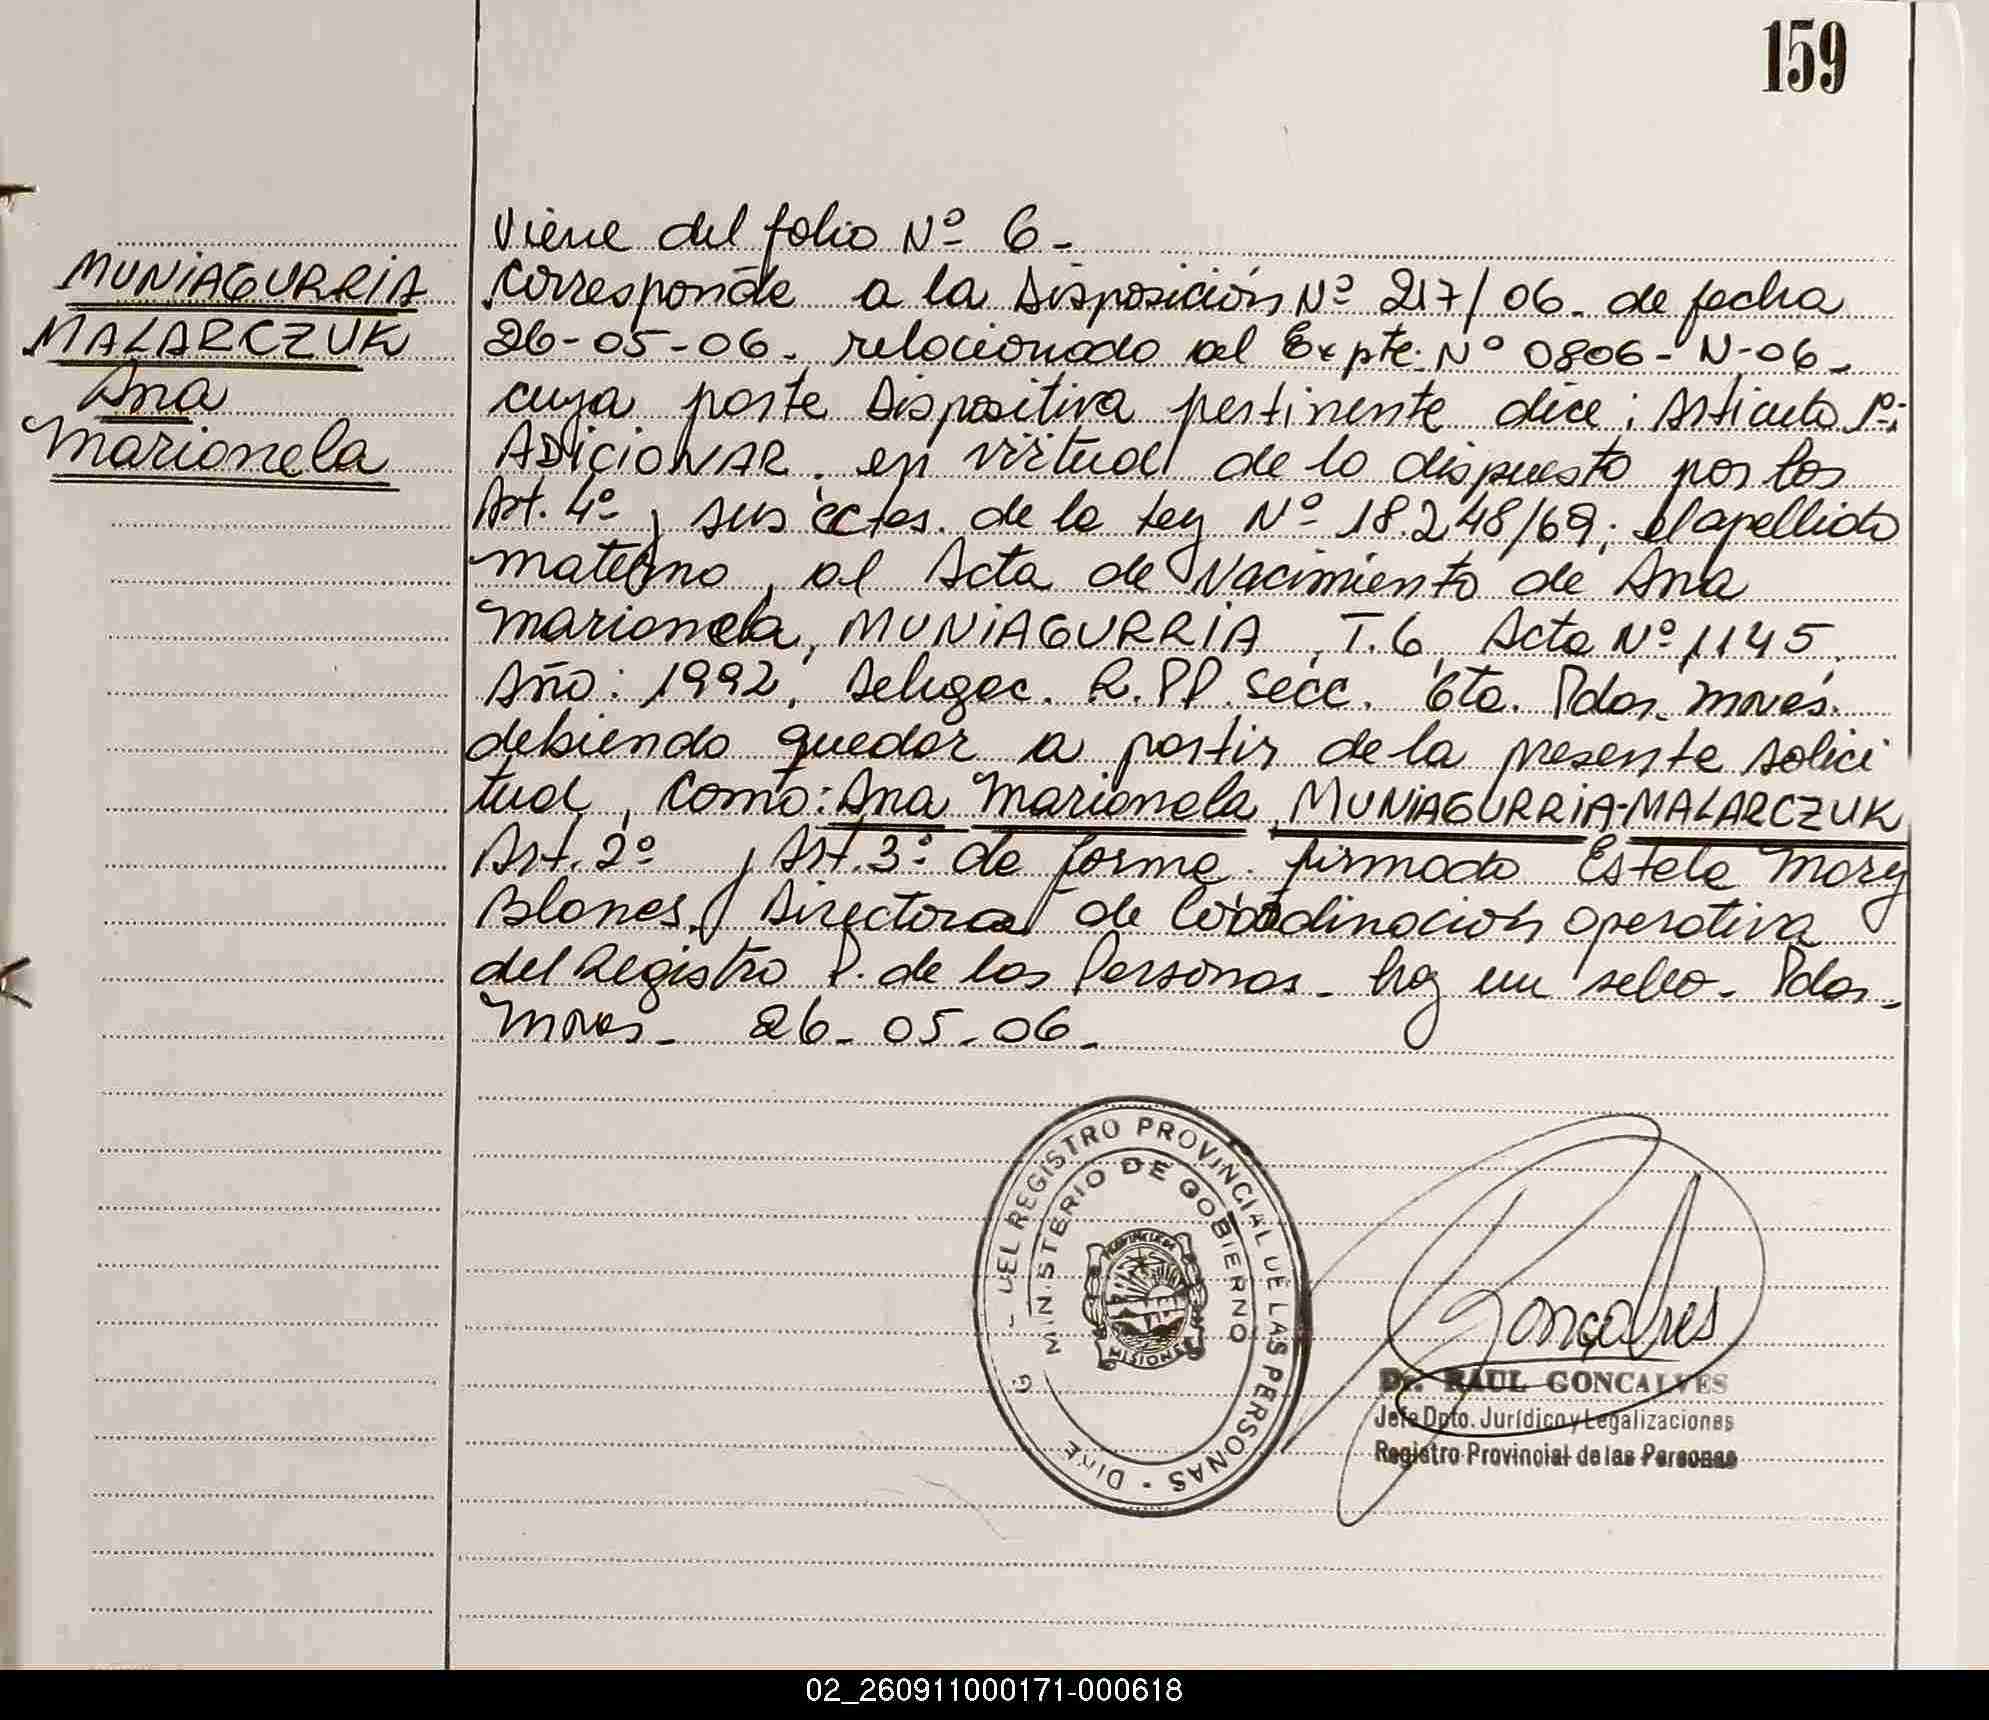 159
MUNIAGURRIA
MALARCZUK
Ana
Marianela
Viene del folio Nº 6-
Corresponde a la Disposición Nº 217/06. de fecha
26-05-06. relacionado al Expte. Nº 0806-N-06-
cuya parte Dispositiva pertinente dice: Artículo 1º:
ADICIONAR. en virtud de lo dispuesto por los
Art. 4º y sus cctes. de la Ley Nº 18.248/69; el apellido
materno, al Acta de Nacimiento de Ana
Marianela, MUNIAGURRIA, T.6, Acta Nº 1145,
Año: 1992, Delegac. R.PP. Secc. 6ta. Pdas. Mnes.
debiendo quedar a partir de la presente solici
tud, como: Ana Marianela, MUNIAGURRIA-MALARCZUK
Art. 2º y Art. 3º de forma. firmado Estela Mary
Blanes, Directora de Coordinación operativa
del Registro P. de las Personas- hay un sello- Pdas-
Mnes- 26-05-06-
DEL REGISTRO PROVINCIAL DE LAS PERSONAS
MINISTERIO DE GOBIERNO
PROVINCIA DE
MISIONES
Goncalves
Dr. RAUL GONCALVES
Jefe Dpto. Jurídico y Legalizaciones
Registro Provincial de las Personas
02_260911000171-000618